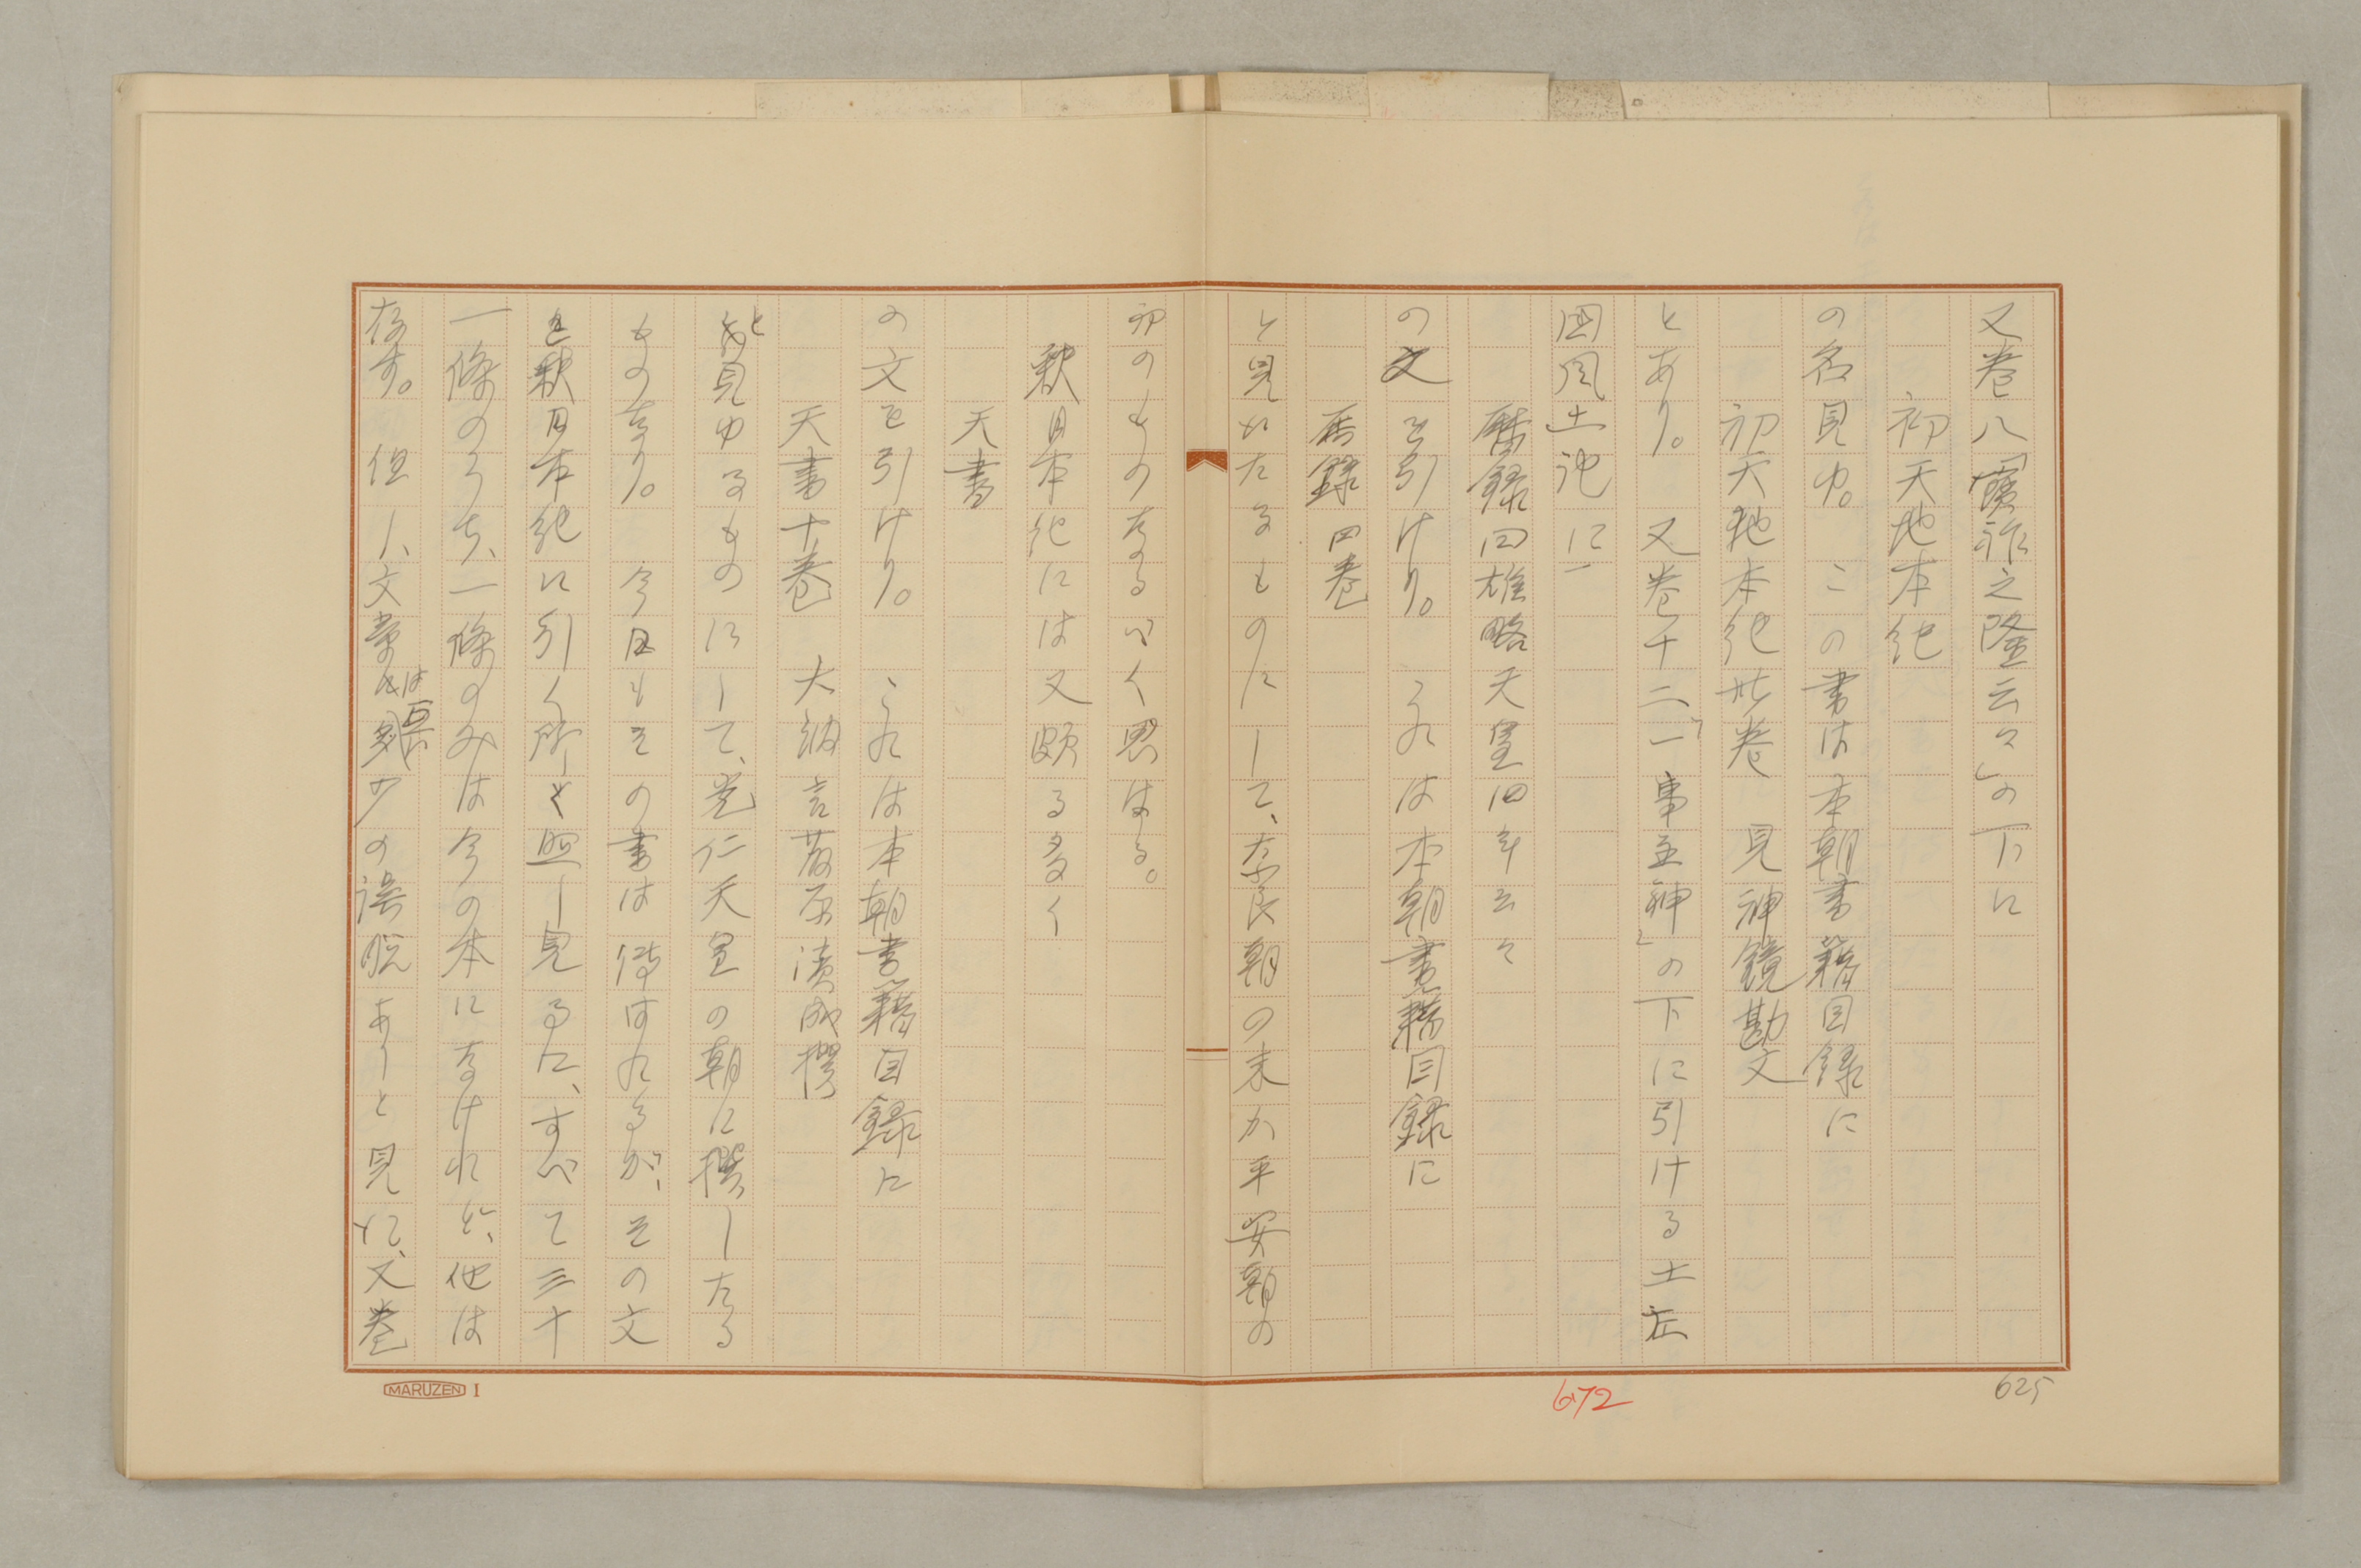 又巻八「寶祚之隆云々」の下に
初天地本紀
の名見ゆ。この書は本朝書籍目録に
初天地本紀 卅巻 見神鏡勘文
とあり。又巻十二「一事主神」の下に引ける土左
国風土記に
暦録曰雄略天皇四年云々
の文を引けり。これは本朝書籍目録に
暦録四巻
と見えたるものにして、奈良朝の末か平安朝の
初のものなるべく思はる。
釈日本紀には又頗る多く
天書
の文を引けり。これは本朝書籍目録に
天書十巻 大納言藤原濱成撰
と見ゆるものにして、光仁天皇の朝に撰したる
ものなり。今日もその書は傳はれるが、その文
を釈日本紀に引く所と照し見るに、すべて三十
一條のうち、一條のみは今の本になけれど、他は
存す。但し、文章には頗る多少の誤脱ありと見え、又巻
MARUZEN I
672
625